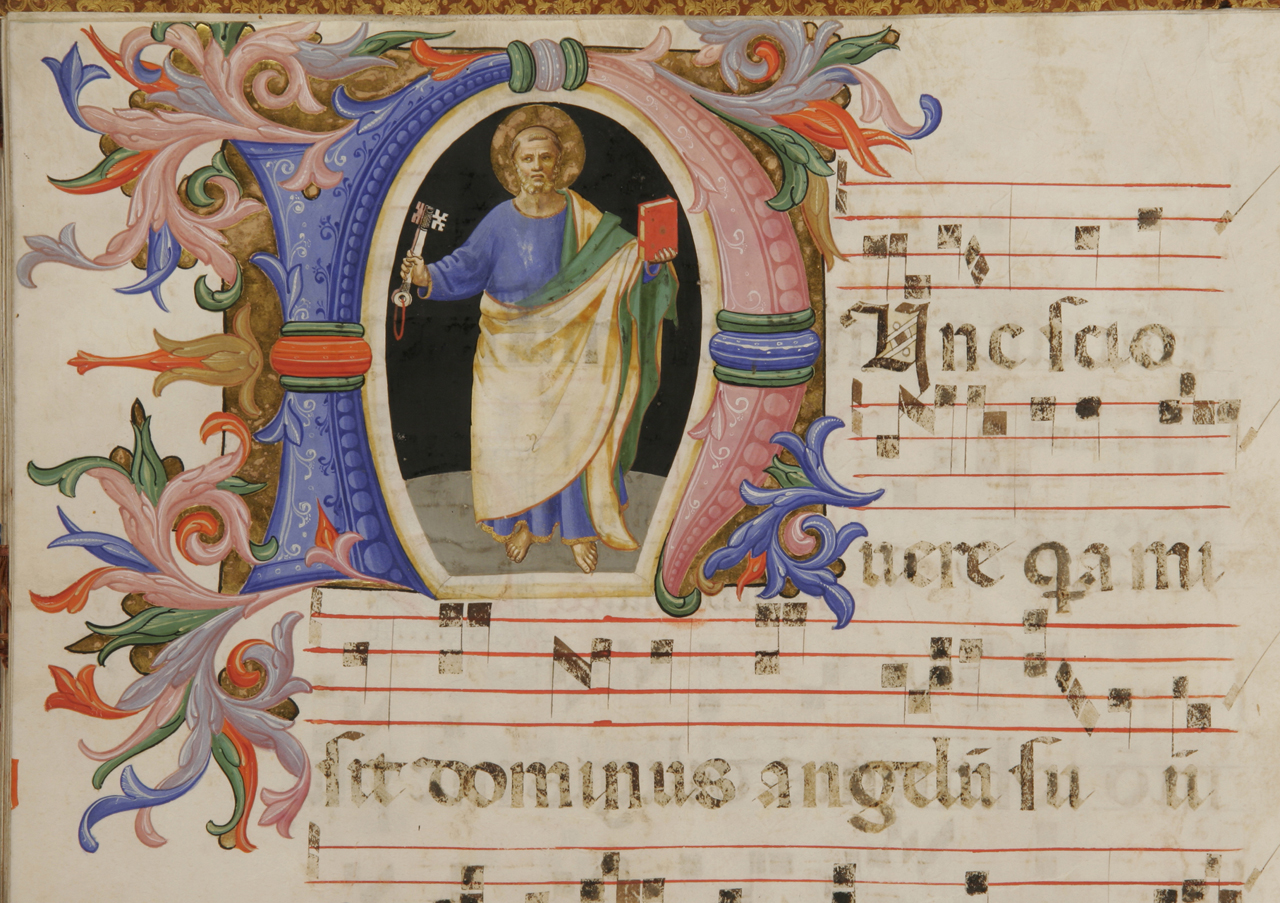 NUnc scio
uere q̄a mi
sit dominus angelū su ū